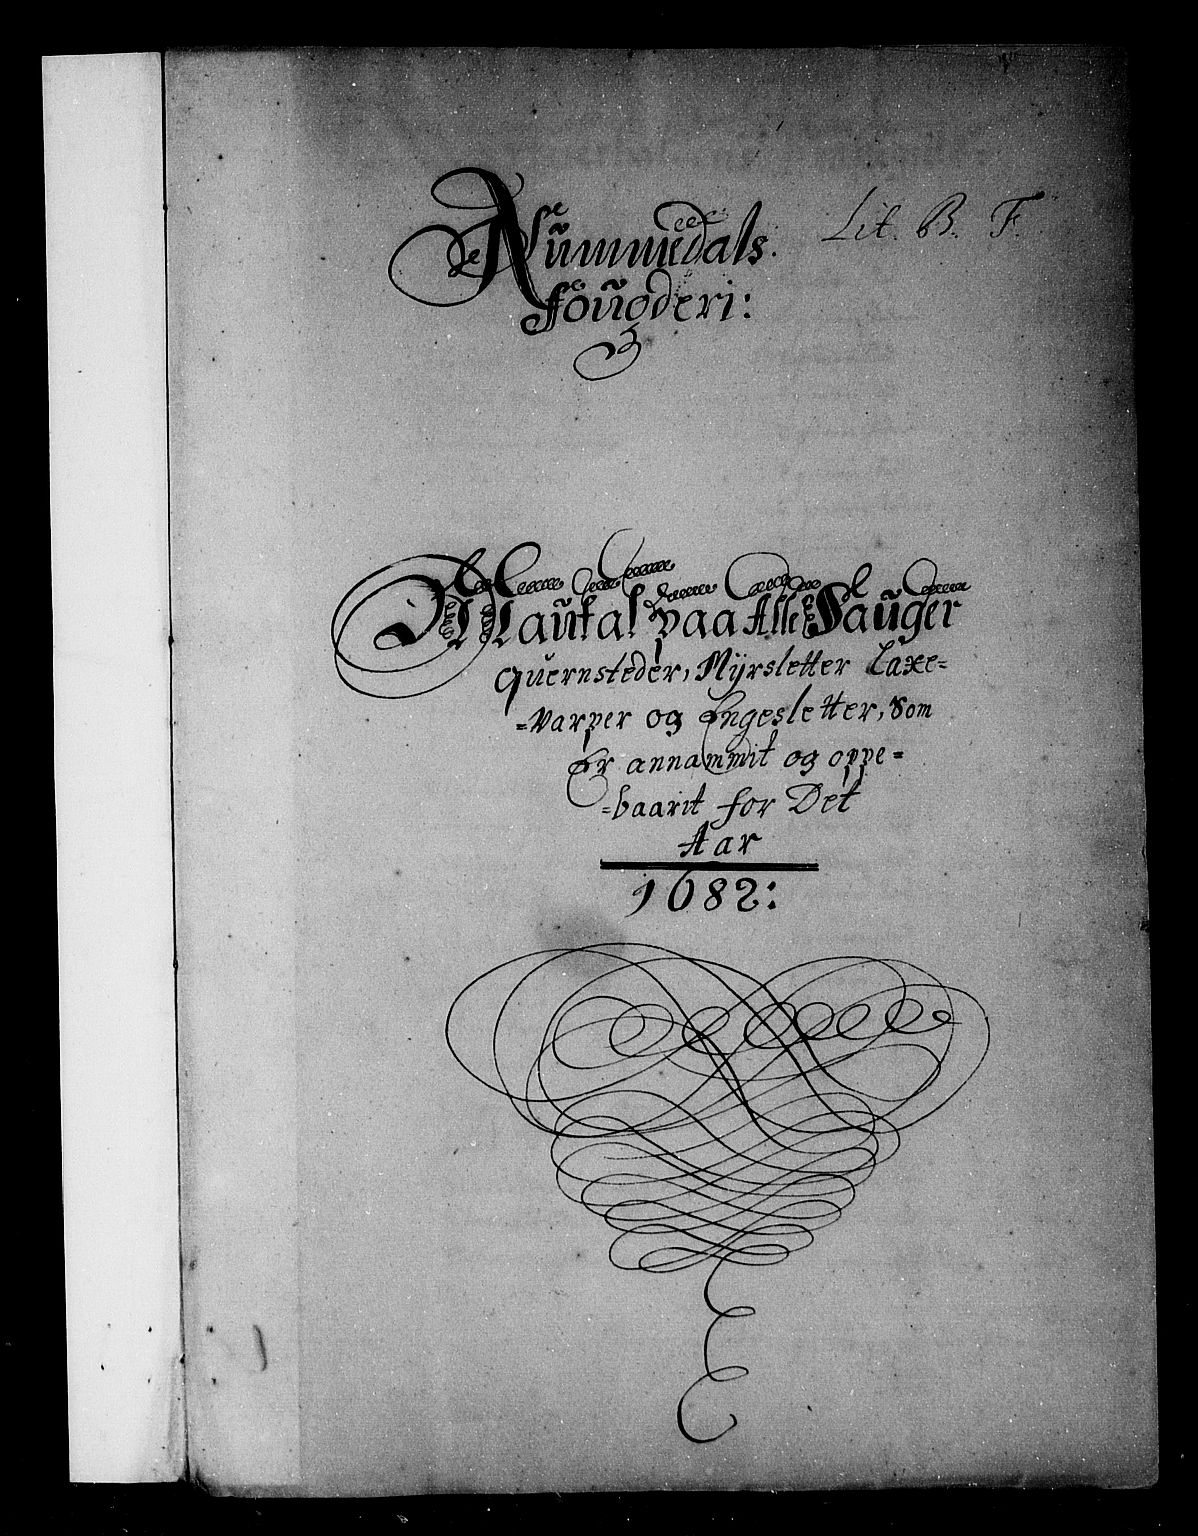 Nummedals
Lit. B. F.
fougderi:
Mantal paa Alle Sauger
Quernsteder, Myrsletter Laxe=
=Varper og Engesletter, Som
Er annammit og oppe=
=baarit for Det
Aar
1682: